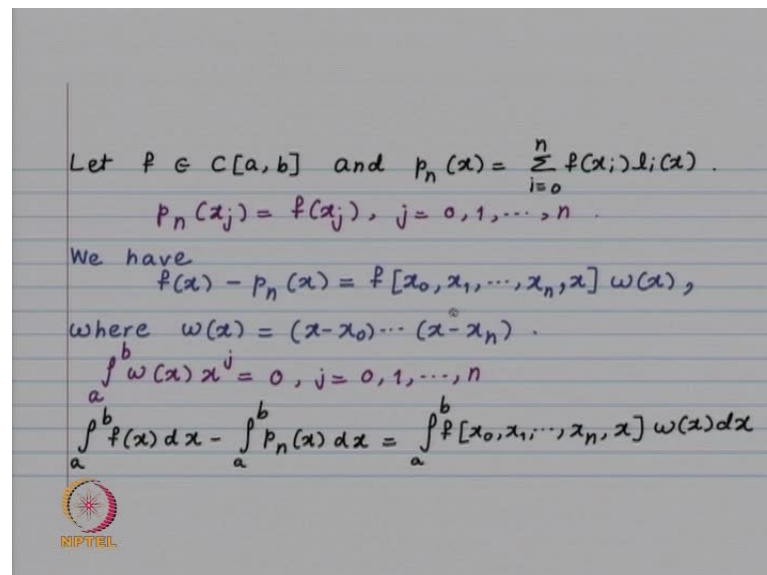 Let f ∈ C[a, b] and pₙ(x) = ∑_{i=0}^{n} f(xᵢ) lᵢ(x).
pₙ(xⱼ) = f(xⱼ), j = 0, 1, ⋯, n.
We have
f(x) - pₙ(x) = f[x₀, x₁, ⋯, xₙ, x] ω(x),
where ω(x) = (x-x₀)⋯(x-xₙ).
∫_a^b ω(x) x^j = 0, j = 0, 1, ⋯, n
∫_a^b f(x) dx - ∫_a^b pₙ(x) dx = ∫_a^b f[x₀, x₁, ⋯, xₙ, x] ω(x) dx
NPTEL